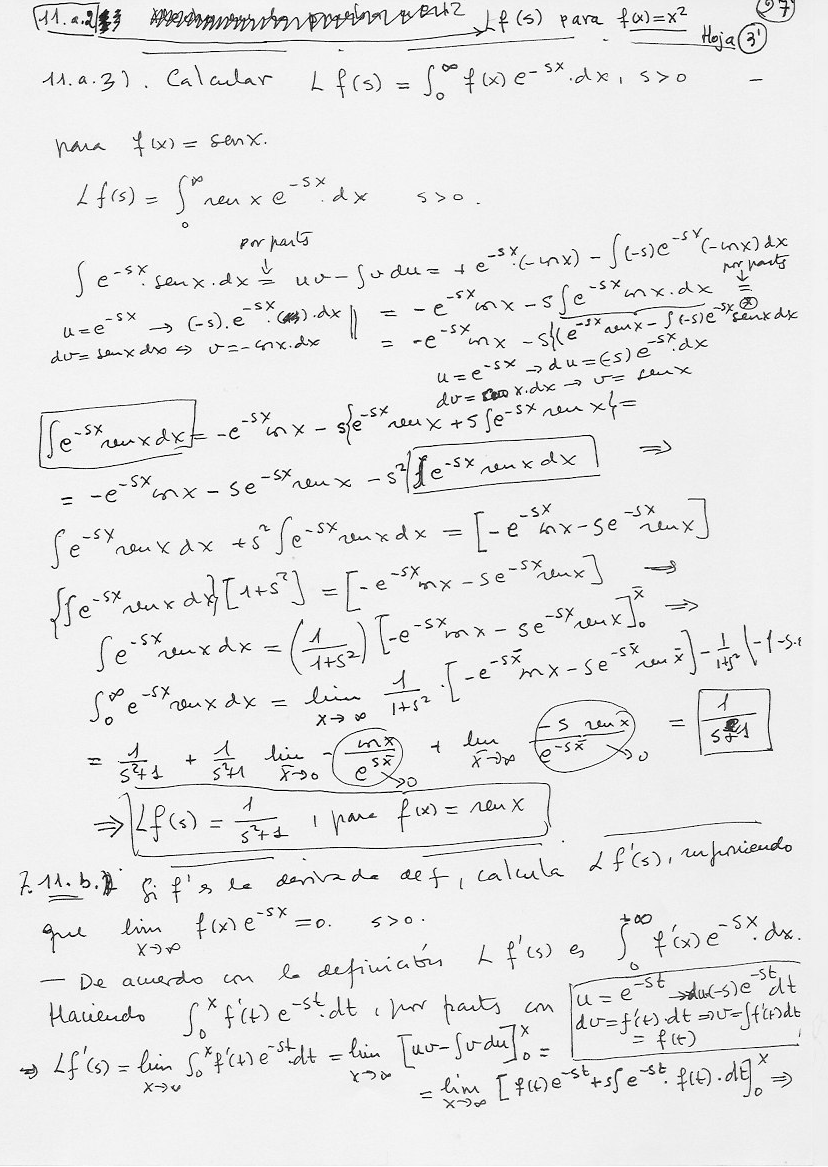 11.a.2 Lf(s) para f(x)=x² 27
Hoja 3'
11.a.3). Calcular L f(s) = ∫₀^∞ f(x) e^{-sx}·dx, s>0
para f(x) = sen x.
L f(s) = ∫₀^∞ sen x e^{-sx}·dx s>0.
por parts
∫ e^{-sx}·sen x·dx = uv - ∫v du = + e^{-sx}·(-cos x) - ∫(-s)e^{-sx}(-cos x) dx
por parts
u = e^{-sx} → (-s)·e^{-sx}·dx || = -e^{-sx} cos x - s ∫e^{-sx} cos x·dx =
dv = sen x dx ⇒ v = -cos x·dx = -e^{-sx} cos x - s{(e^{-sx} sen x - ∫(-s)e^{-sx} sen x dx
u = e^{-sx} → du = (-s) e^{-sx}·dx
dv = cos x·dx → v = sen x
∫e^{-sx} sen x dx = -e^{-sx} cos x - s{e^{-sx} sen x + s∫e^{-sx} sen x} =
= -e^{-sx} cos x - s e^{-sx} sen x - s² ∫e^{-sx} sen x dx ⇒
∫e^{-sx} sen x dx + s² ∫e^{-sx} sen x dx = [-e^{-sx} cos x - s e^{-sx} sen x]
{∫e^{-sx} sen x dx}[1+s²] = [-e^{-sx} cos x - s e^{-sx} sen x] ⇒
∫e^{-sx} sen x dx = (1/(1+s²)) [-e^{-sx} cos x - s e^{-sx} sen x]₀^x̄ ⇒
∫₀^∞ e^{-sx} sen x dx = lim x→∞ 1/(1+s²) · [-e^{-sx̄} cos x - s e^{-sx̄} sen x̄] - 1/(1+s²) (-1-s.
= 1/(s²+1) + 1/(s²+1) lim x̄→∞ - cos x̄/e^{sx̄} →0 + lim x̄→∞ -s sen x̄/e^{-sx̄} →0 = 1/(s²+1)
⇒ Lf(s) = 1/(s²+1), para f(x) = sen x
7.11.b. Si f' es la derivada de f, calcula L f'(s), suponiendo
que lim x→∞ f(x) e^{-sx} = 0. s>0.
— De acuerdo con la definición L f'(s) es ∫₀^{+∞} f'(x) e^{-sx}·dx.
Haciendo ∫₀^x f'(t) e^{-st}·dt, por parts con u = e^{-st} → du(-s)e^{-st}dt
dv = f'(t)·dt ⇒ v = ∫f'(t)dt
= f(t)
⇒ Lf'(s) = lim x→∞ ∫₀^x f'(t) e^{-st}dt = lim x→∞ [uv - ∫v du]₀^x =
= lim x→∞ [f(t) e^{-st} + s∫e^{-st}·f(t)·dt]₀^x ⇒